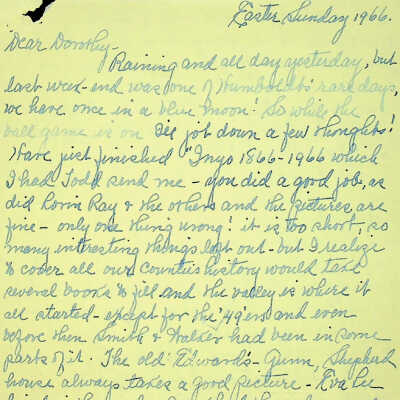 Easter Sunday 1966.
Dear Dorothy-
Raining and all day yesterday, but
last week-end was one of Humboldts' rare days,
we have once in a blue moon! So while the
ball game is on I'll jot down a few thoughts!
Have just finished "Inyo 1866-1966 which
I had Todd send me - you did a good job, as
did Lorin Ray & the others and the pictures are
fine - only one thing wrong! it is too short, so
many interesting things left out - but I realize
to cover all our Counties history would take
several books to fill and the valley is where it
all started - except for the '49ers and even
before then Smith & Walker had been in some
parts of it. The old Edwards - Gunn, Shepherd
house always takes a good picture - Eva Lee